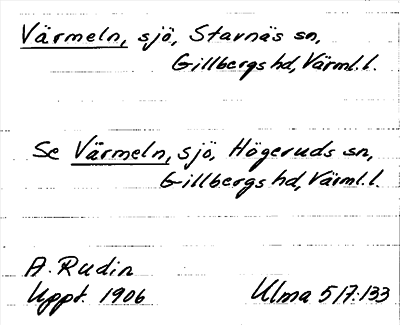 Värmeln, sjö, Stavnäs sn,
Gillbergs hd, Värml. l.
Se Värmeln, sjö, Högeruds sn,
Gillbergs hd, Värml. l.
A. Rudin
Uppt. 1906
Ulma 517:133